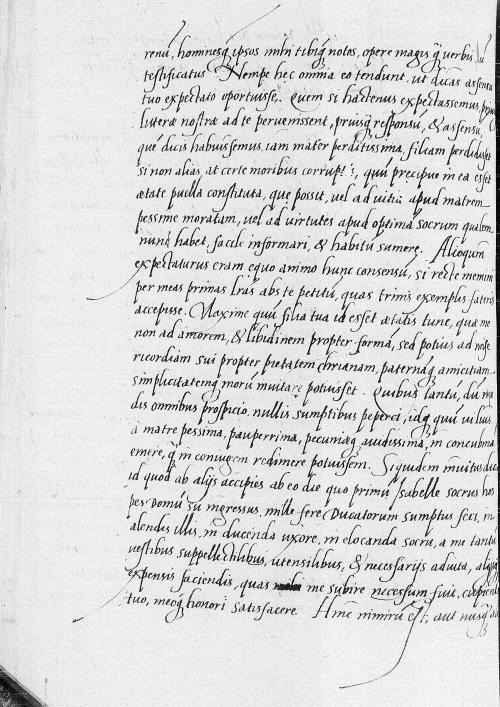 renũ, hominesq; ipsos mihi tibiq; notos, opere magis q̃ verbis
testificatus. Nempe hec omnia eo tendunt. ut dicas assensu
tuo expectato oportuisse. Quem si hactenus expectassemus,
literæ nostræ ad te pervenissent, priusq; responsũ, & assensũ,
quẽ dicis habuissemus, iam mater perditissima, filiam perdidisset
si non alias, at certe moribus corrupt s, quũ precipue in ea esset
ætate puella constituta, que possit, vel ad vitia apud matrem
pessime moratam, vel ad virtutes apud optimã socrum qualem
nunc habet, facile informari, & habitũ sumere. Alioqum
expectaturus eram equo animo hunc consensũ, si recte memini
per meas primas lr̃as abs te petitũ, quas trinis exemplis
accepisse. Maxime quũ filia tua id esset ætatis tunc, quæ me
non ad amorem, & libidinem propter formã, sed potius ad
ricordiam sui propter pietatem chr̃ianam, paternãq; amicitiam
simplicitatemq; morũ invitare potuisset. Quibus tantũ, dũ
dis omnibus prospicio, nullis sumptibus peperci, idq; quũ
à matre pessima, pauperrima, pecuniæq; avidissima, in concubinã
emere, q̃ in coniugem redimere potuissem. Siquidem invitus
id quod ab alijs accipies ab eo die quo primũ Isabelle socrus
pes domũ sũ ingressus, mille fere Ducatorum sumptus feci, in
alendis illis, in ducenda uxore, in elocanda socru, a me tantũ
vestibus suppellectilibus, utensilibus, & necessarijs adiuta,
expensis faciendis, quas me subire necessum fuit, cupiens
tuo, meoq; honori satisfacere. Hinc nimirũ est, aut